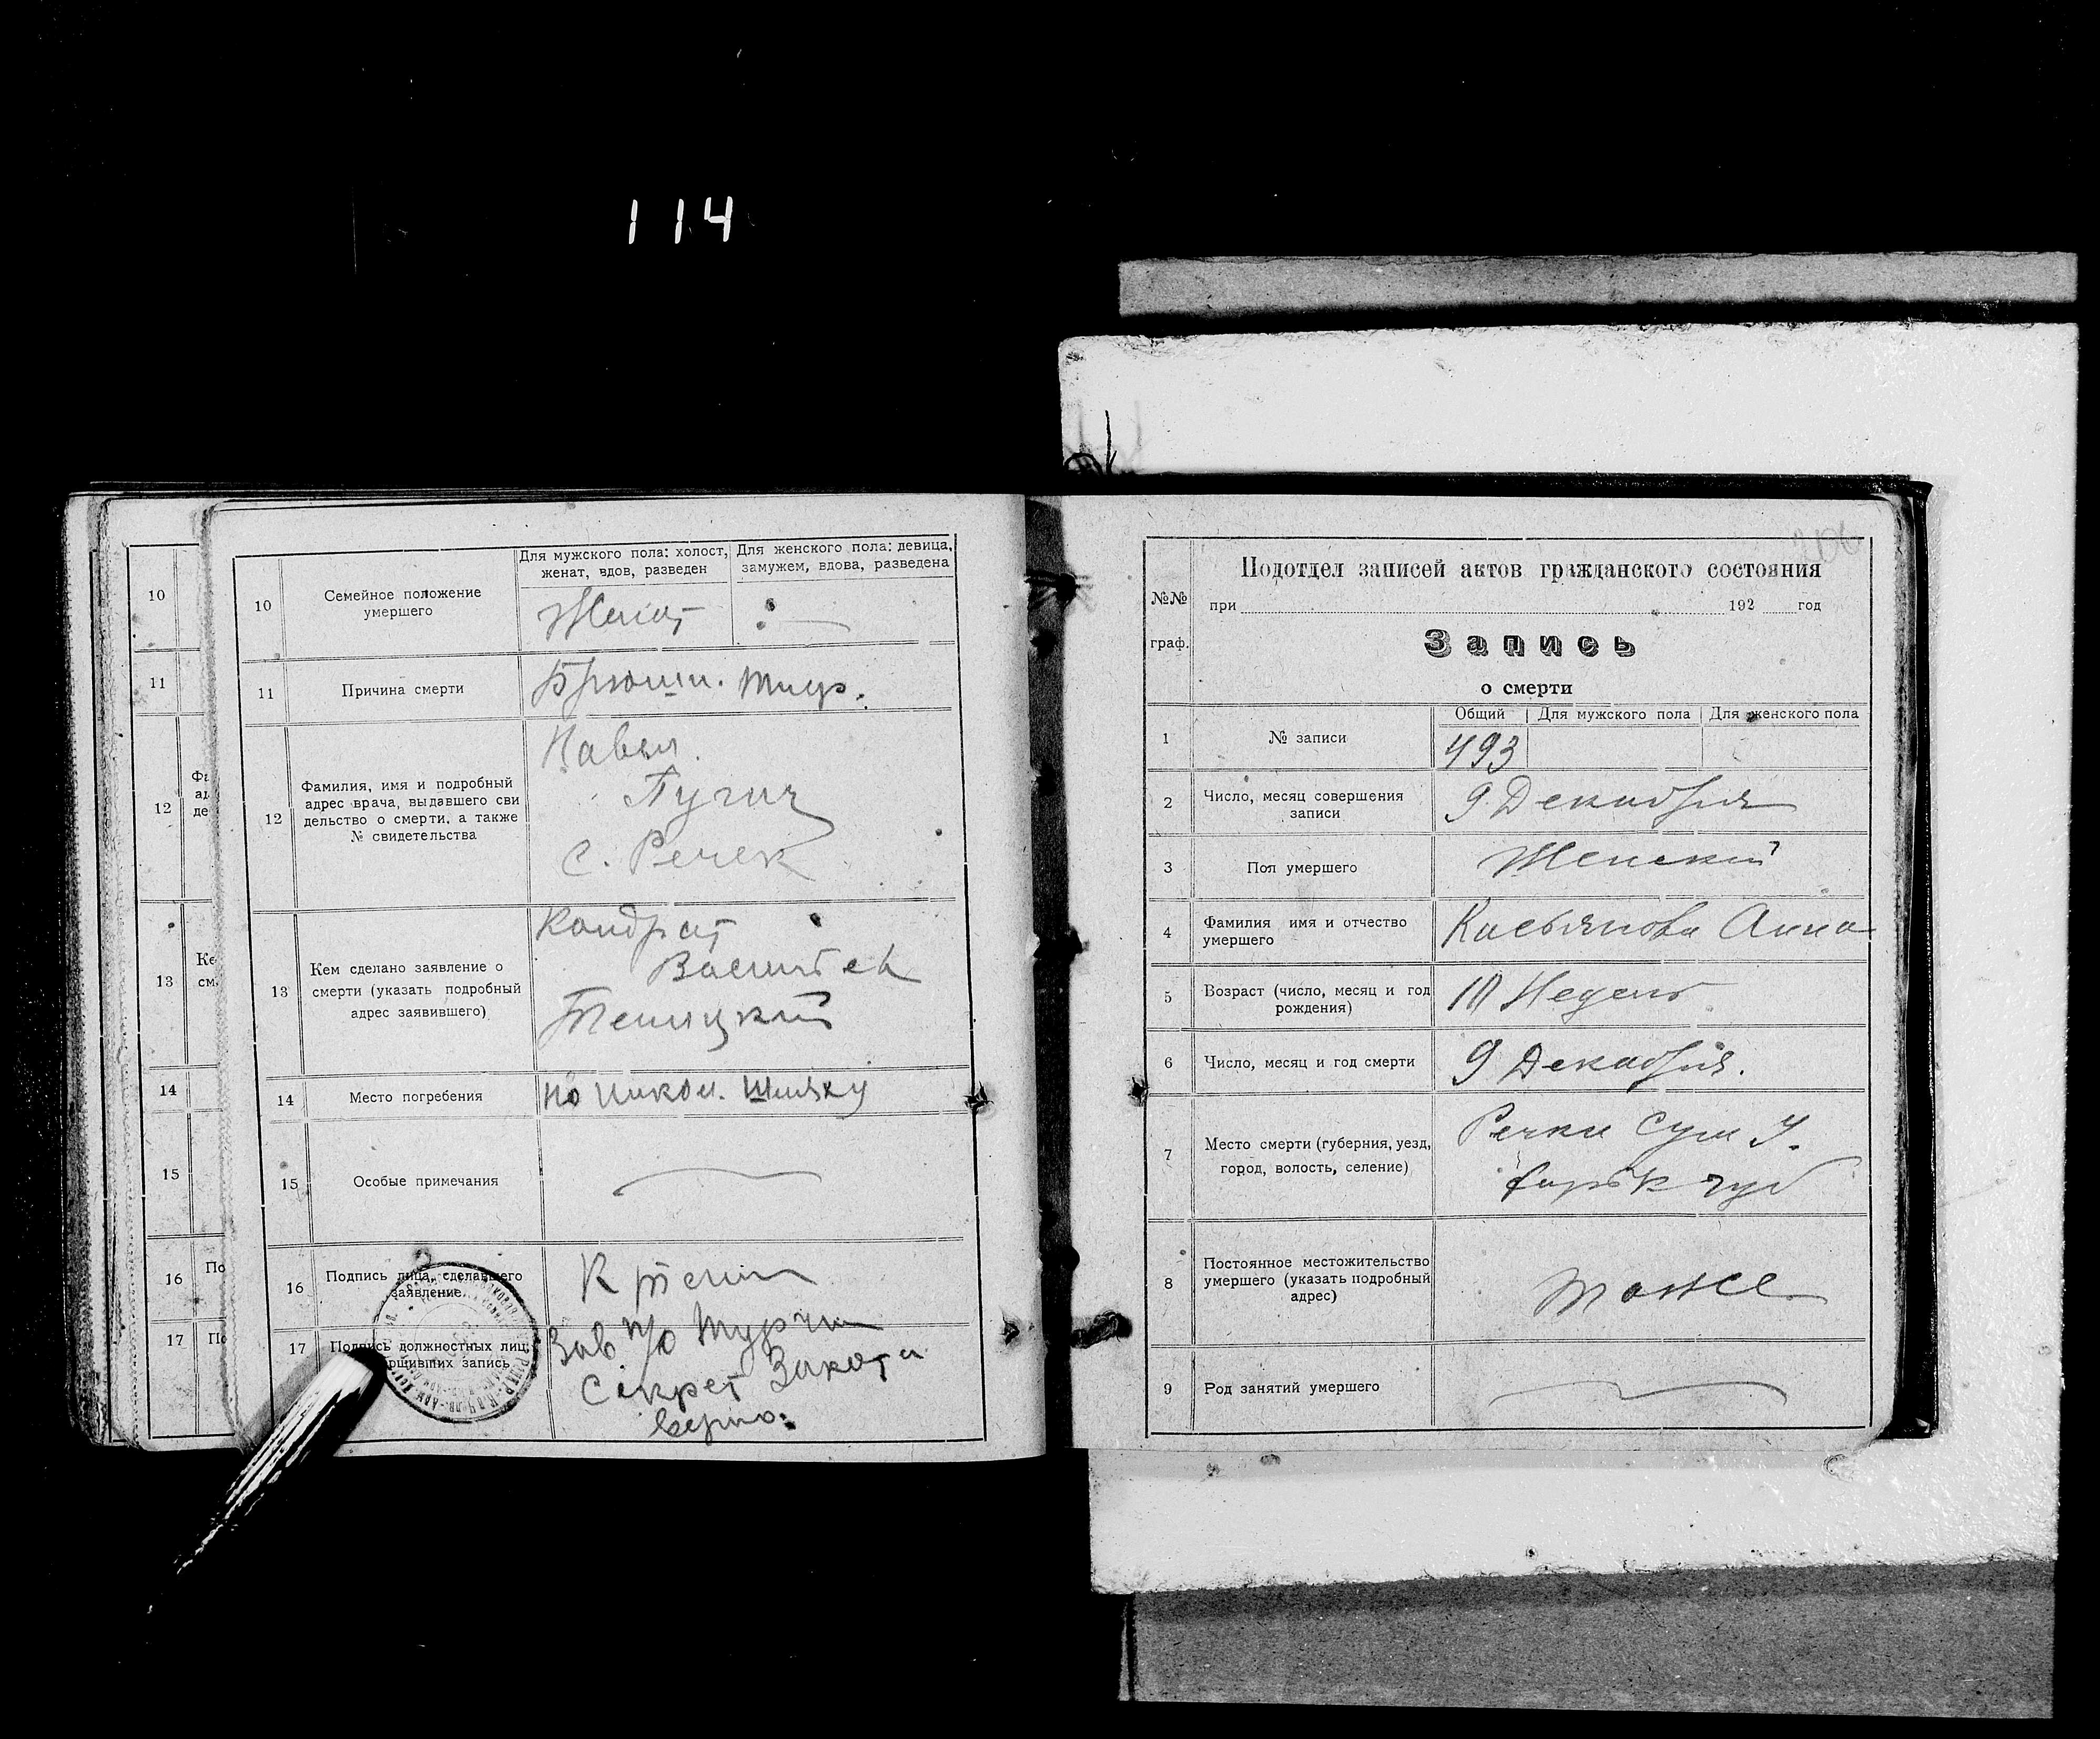 114
10
11
12
13
14
15
16
17
10
Семейное положение
умершего
Для мужского пола: холост,
женат, вдов, разведен
Для женского пола: девица,
замужем, вдова, разведена
Женат
11
Причина смерти
Брюшн. тиф.
12
Фамилия, имя и подробный
адрес врача, выдавшего сви
дельство о смерти, а также
№ свидетельства
Павел
с. Речек
13
Кем сделано заявление о
смерти (указать подробный
адрес заявившего)
Кондрат
14
Место погребения
15
Особые примечания
16
Подпись лица, сделавшего
заявление
17
Подпись должностных лиц,
рщивших запись
Зав п/о
Секрет
Верно:
206
№№
граф.
Подотдел записей актов гражданского состояния
при 192 год
Запись
о смерти
Общий
Для мужского пола
Для женского пола
1
№ записи
493
2
Число, месяц совершения
записи
9 Декабря
3
Пол умершего
Женский
4
Фамилия имя и отчество
умершего
Касьянова Анна
5
Возраст (число, месяц и год
рождения)
10 Недель
6
Число, месяц и год смерти
9 Декабря.
7
Место смерти (губерния, уезд,
город, волость, селение)
Речки Сум У.
Харьк губ
8
Постоянное местожительство
умершего (указать подробный
адрес)
тоже
9
Род занятий умершего